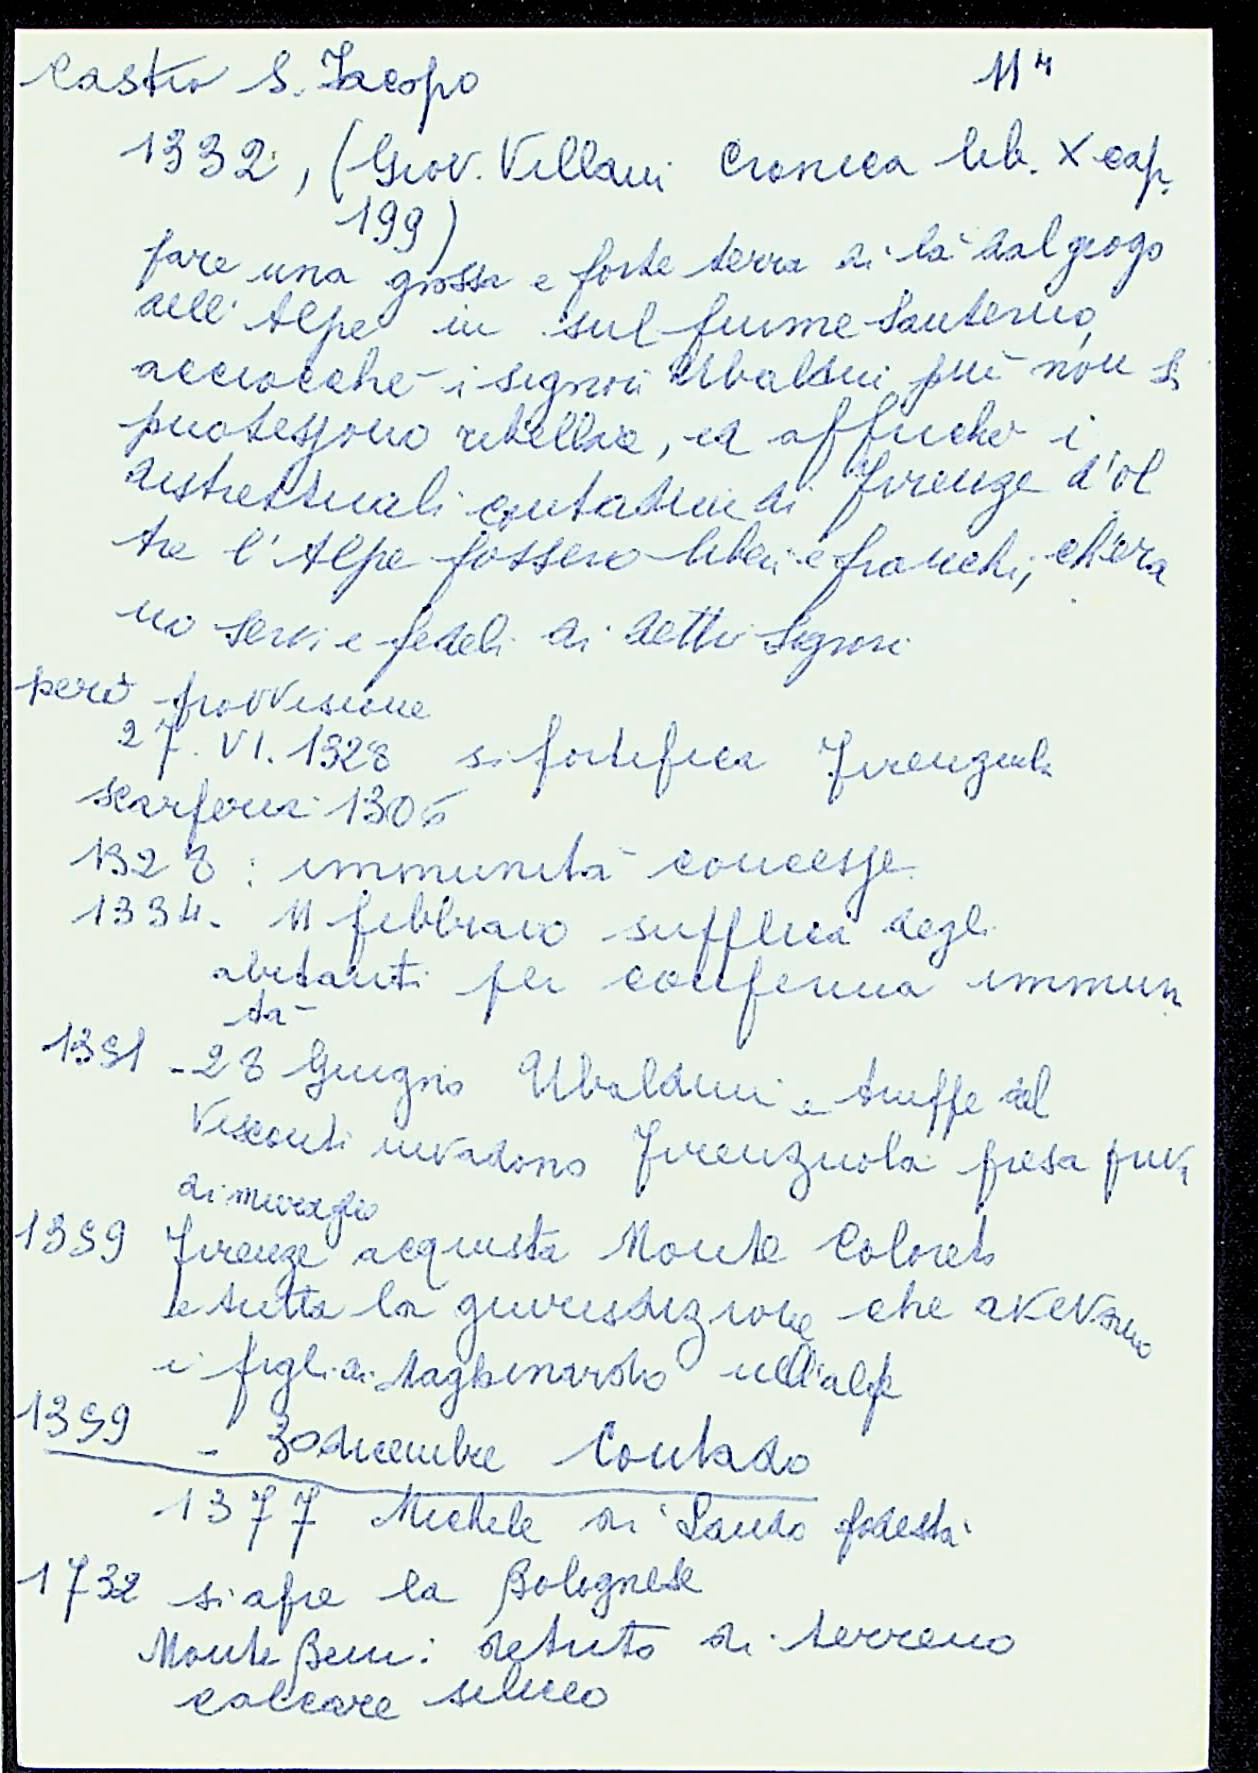 Castro S. Jacopo 114
1332, (Giov. Villani Cronica lib. X cap.
199)
fare una grossa e forte terra di là dal giogo
dell'Alpe in sul fiume Santerno,
acciocché i signori Ubaldini più non si
potessono ribellare, ed affinché i
distrettuali contadini di Firenze d'ol
tre l'Alpe fossero liberi e franchi, ch'era
no servi e fedeli di detti Signori
però provvisione
27. VI. 1328 si fortifica Firenzuola
Scarperia 1306
1328 : immunità concesse
1334. 11 febbraio supplica degli
abitanti per conferma immuni
tà
1351 - 28 Giugno Ubaldini e truppe del
Visconti invadono Firenzuola presa priva
di muraglie
1359 Firenze acquista Monte Coloreto
e tutta la giurisdizione che avevano
i figli di Maghinardo nell'alpe
1359 - 30 dicembre Contado
1377 Michele di Lando podestà
1732 si apre la Bolognese
Monte Beni: detrito di terreno
calcare siliceo